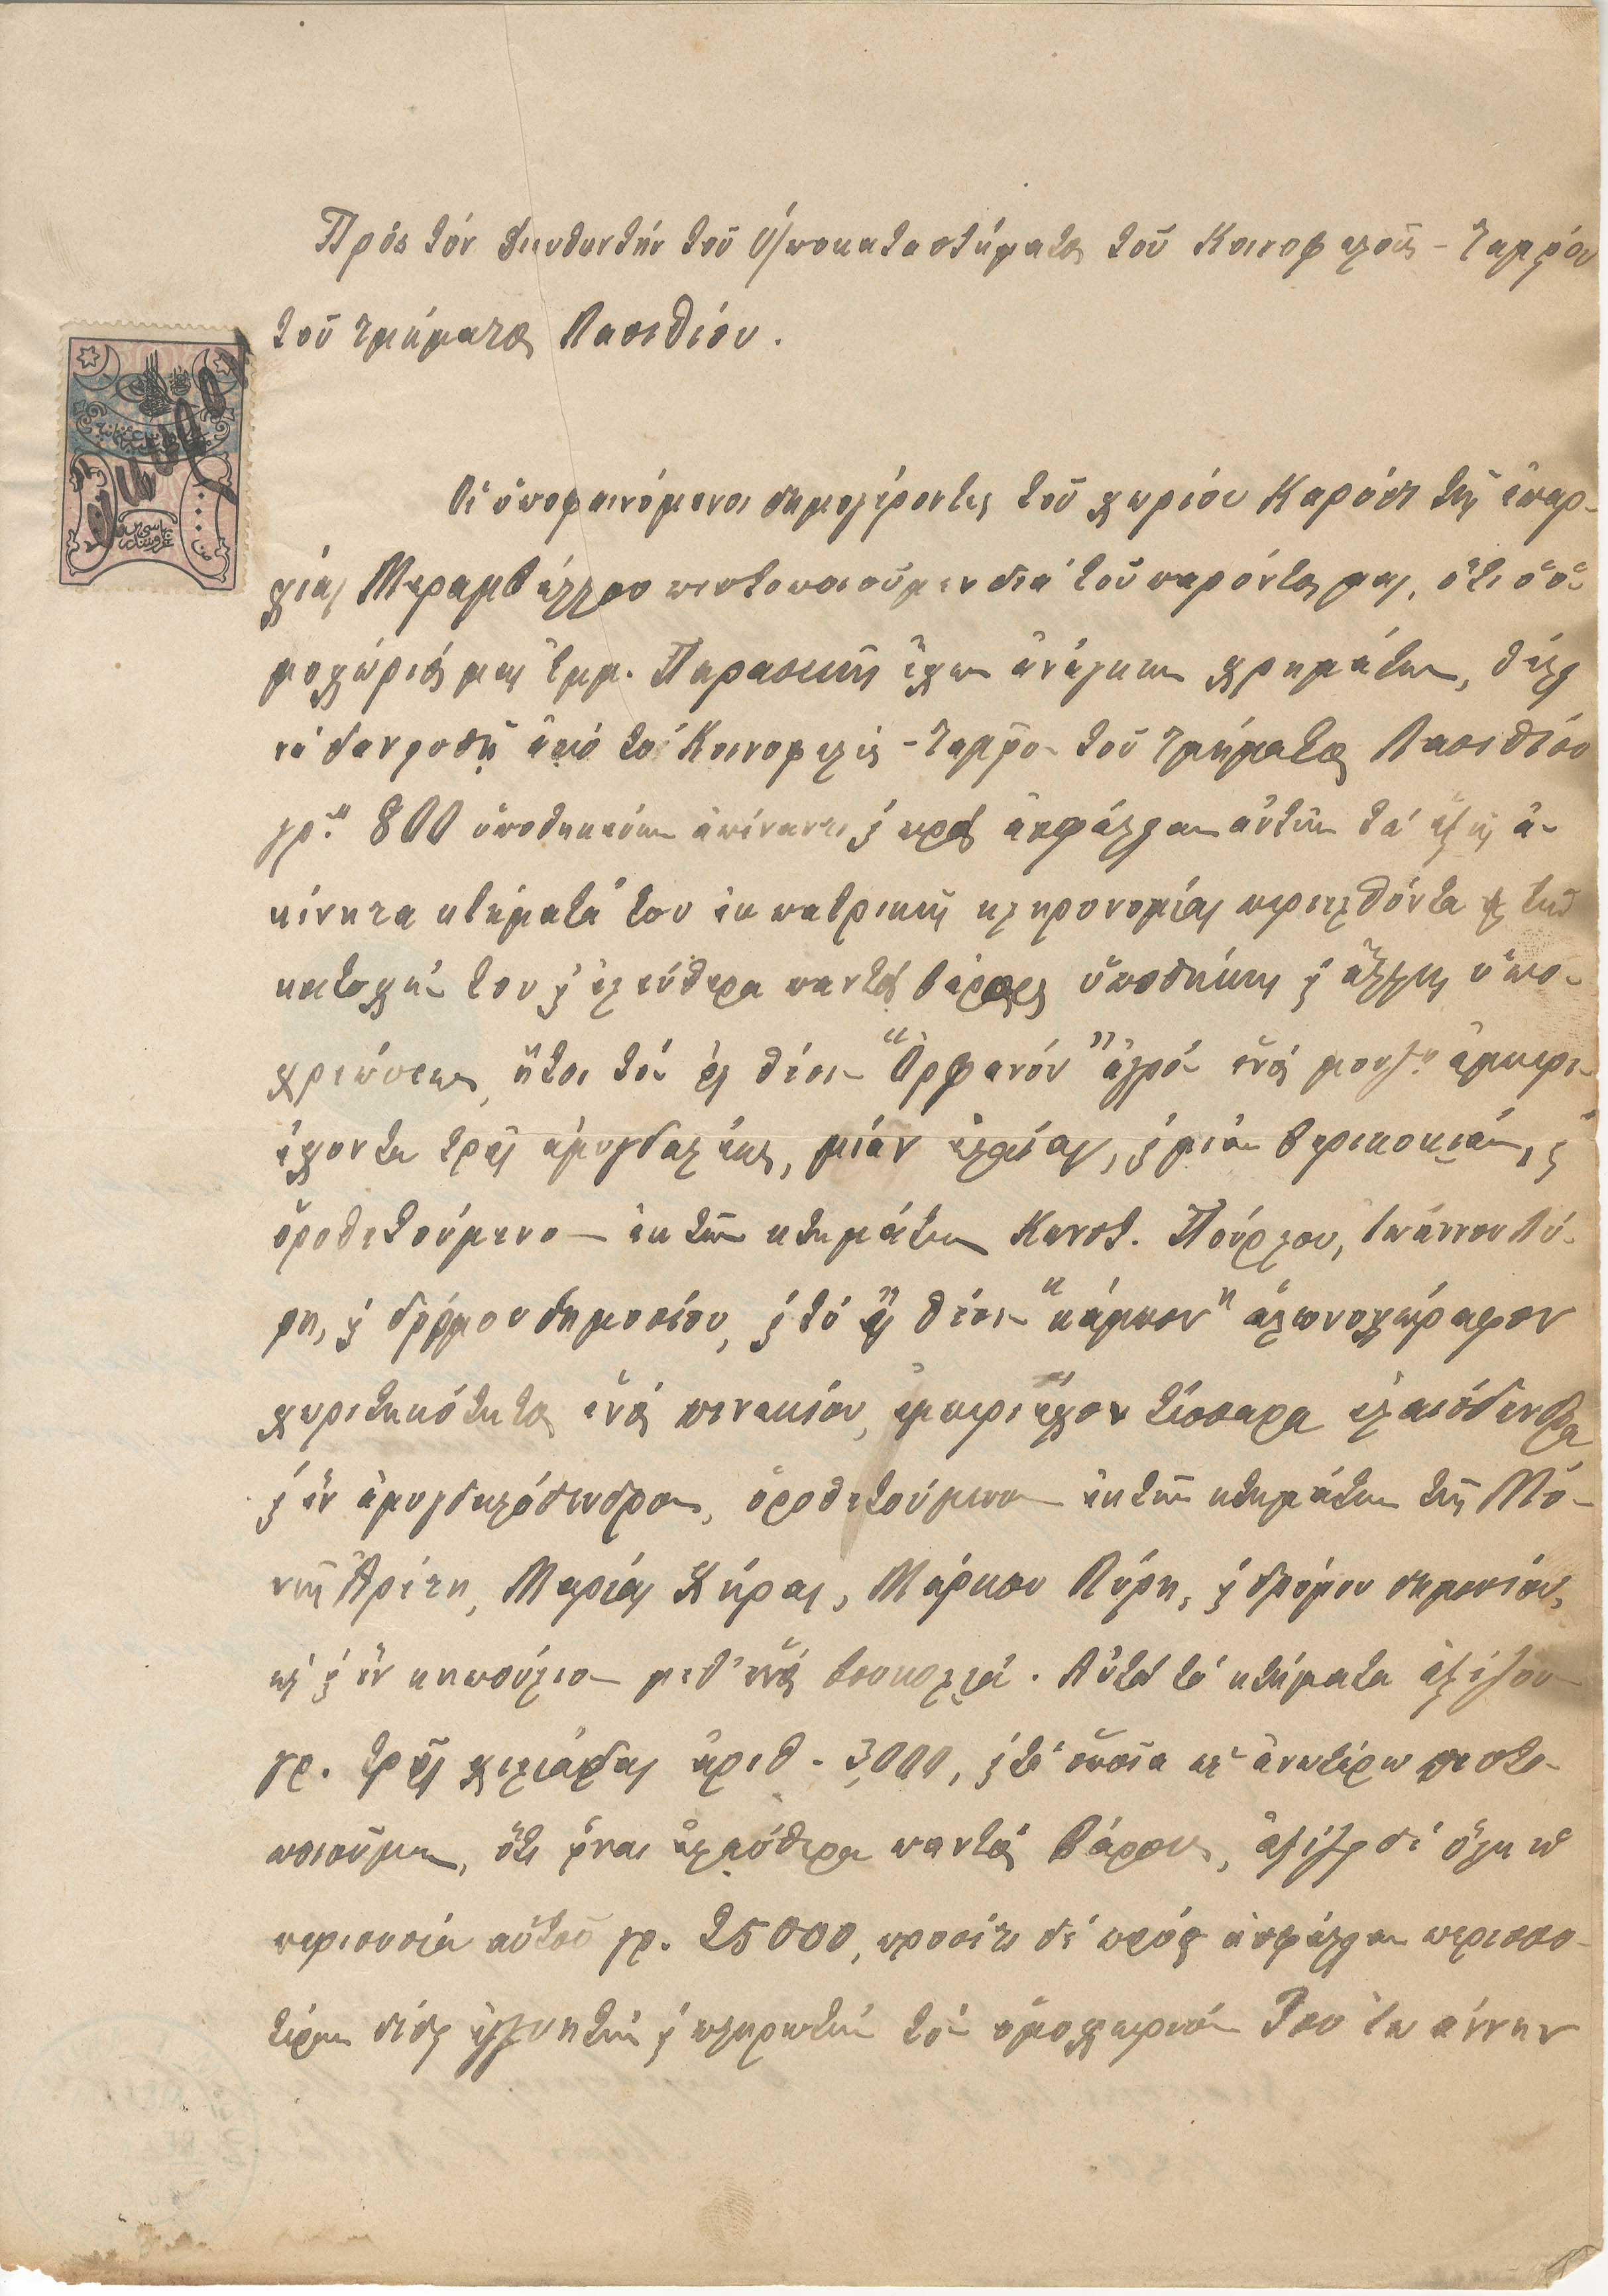 Πρὸς τὸν Διευθυντὴν τοῦ Ὑποκαταστήματος τοῦ Κοινοφελοῦς - Ταμείου
τοῦ τμήματος Λασιθίου.
Οἱ ὑποφαινόμενοι δημογέροντες τοῦ χωρίου Καρύδι τῆς ἐπαρ-
χίας Μεραμβέλλου πιστοποιοῦμεν διὰ τοῦ παρόντος μας, ὅτι ὁ ὁ-
μοχώριός μας Ἐμμ. Παρασκευῆς ἔχων ἀνάγκην χρημάτων, θέλει
νὰ δανεισθῇ ἀπὸ τὸ Κοινοφελὲς - Ταμεῖον τοῦ τμήματος Λασιθίου
γρ. 800 ὑποθηκεύων ἀπέναντι ϗ πρὸς ἀσφάλειαν αὐτῶν τὰ ἑξῆς ἀ-
κίνητα κτήματά του ἐκ πατρικῆς κληρονομίας περιελθόντα εἰς τὴν
κατοχήν του ϗ ἐλεύθερα παντὸς βάρους ὑποθήκης ϗ ἄλλης ὑπο-
χρεώσεως, ἤτοι τὸν εἰς θέσιν "Ὀρφανόν" ἀγρὸν ἑνὸς μουζ. ἐμπερι-
έχοντα τρεῖς ἀμυγδαλέας, μίαν ἐλαίαν, ϗ μίαν βερικοκιάν, ϗ
ὁροθετούμενον ἐκ τῶν κτημάτων Κωνστ. Πούρλου, Ἰωάννου Λύ-
ρη, ϗ δρόμου δημοσίου, ϗ τὸ εἰς θέσιν "κάμπον" ἁλωνοχώραφον
χωρητικότητος ἑνὸς πινακίου, ἐμπεριέχον τέσσαρα ἐλαιόδενδρα
ϗ ἓν ἀμυγδαλόδενδρον, ὁροθετούμενον ἐκ τῶν κτημάτων τῆς Μο-
νῆς Ἀρέτη, Μαρίας Χήρας, Μάρκου Λύρη, ϗ δρόμου δημοσίου,
ὡς ϗ ἓν κηπούλιον μεθ' ἑνὸς. Αὐτὰ τὰ κτήματα ἀξίζουν
γρ. τρεῖς χιλιάδας ἀριθ. 3,000, ϗ τὰ ὁποῖα ὡς ἀνωτέρω πιστο-
ποιοῦμεν, ὅτι εἶναι ἐλεύθερα παντὸς βάρους, ἀξίζει δὲ ὅλη ἡ
περιουσία αὐτοῦ γρ. 25000, προσέτι δὲ πρὸς ἀσφάλειαν περισσο-
τέραν δίδει ἐγγυητὴν ϗ πληρωτὴν τὸν ὁμοχωριόν του Ἰωάννην